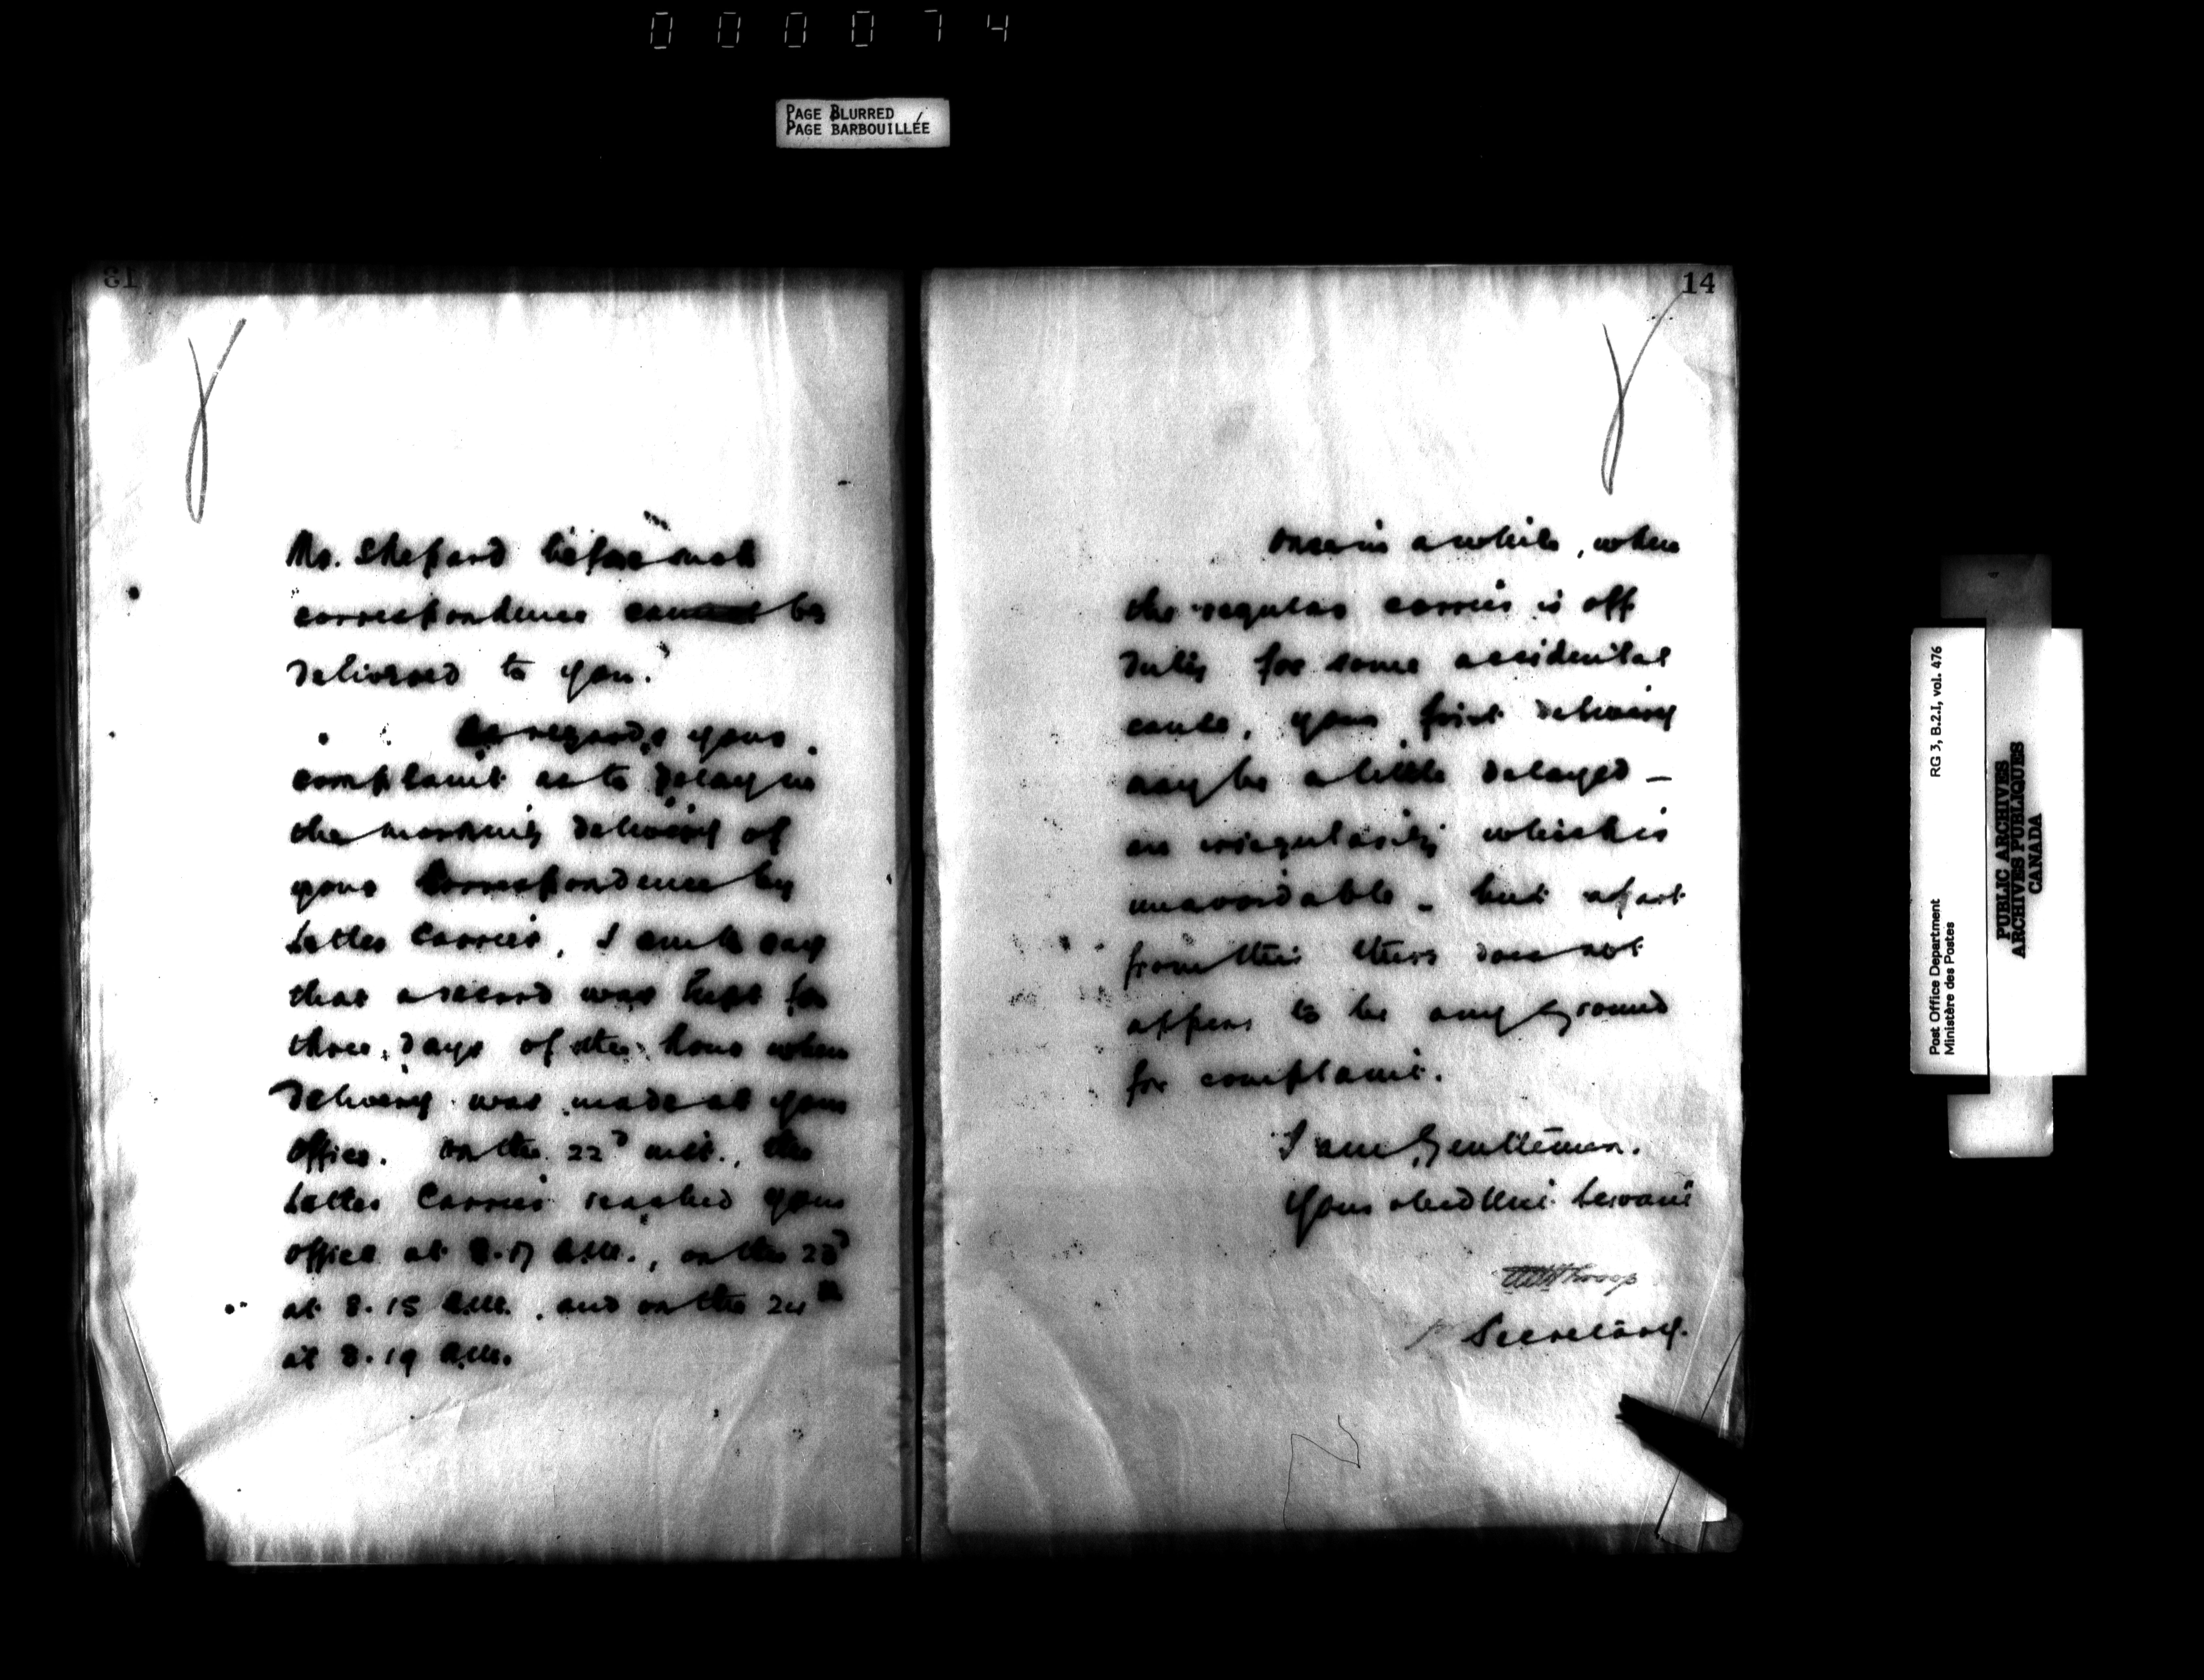 000074
PAGE BLURRED
PAGE BARBOUILLÉE
13
Mr. Shepard before such
correspondence can be
delivered to you.
As regards your
complaint as to delay in
the morning delivery of
your correspondence by
Letter Carrier, I am to say
that a record was kept for
three days of the hour when
delivery was made at your
office. On the 22d ult., the
Letter Carrier reached your
office at 8.17 a.m., on the 23d
at 8.15 a.m., and on the 24th
at 8.19 a.m.
14
Once in a while, when
the regular carrier is off
duty for some accidental
cause, your first delivery
may be a little delayed —
an irregularity which is
unavoidable - but apart
from this there does not
appear to be any ground
for complaint.
I am, Gentlemen,
Your obedient Servant
Secretary.
Post Office Department
Ministère des Postes
RG 3, B.2.I, vol. 476
PUBLIC ARCHIVES
ARCHIVES PUBLIQUES
CANADA